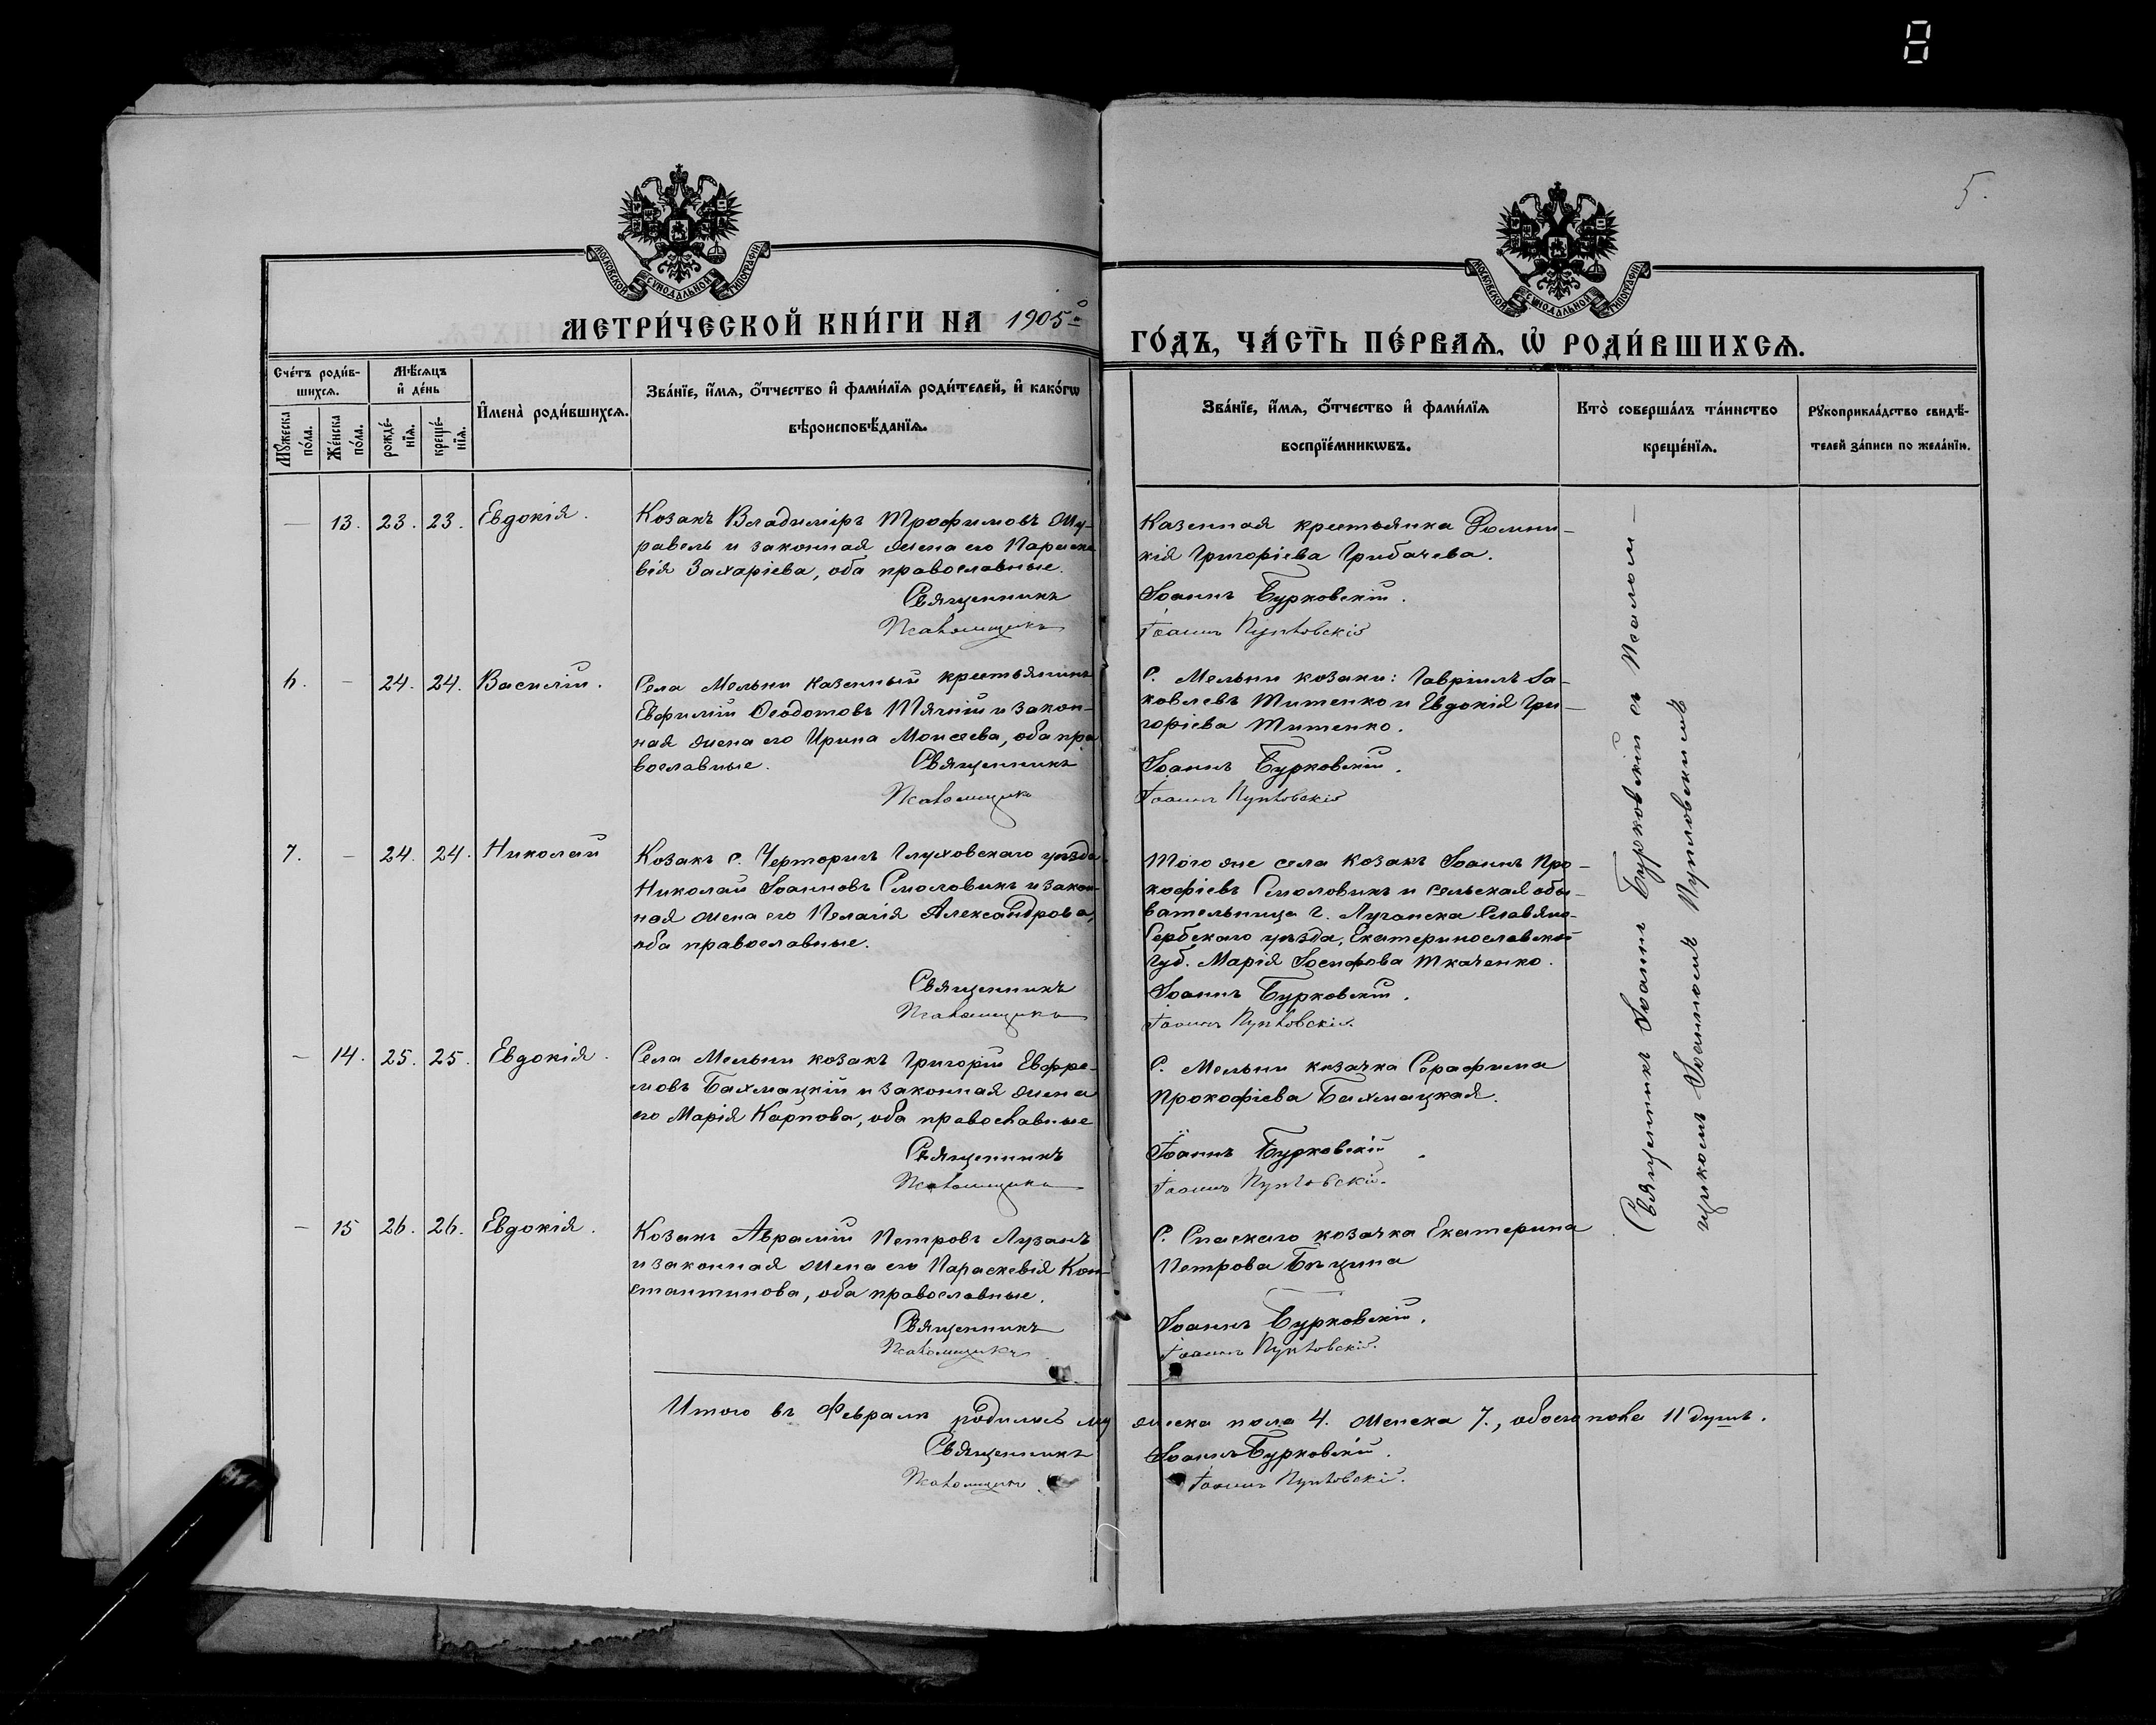 8
5.
МОСКОВСКОЙ СѴНОДАЛЬНОЙ ТИПОГРАФІИ
МОСКОВСКОЙ СѴНОДАЛЬНОЙ ТИПОГРАФІИ
МЕТРИ́ЧЕСКОЙ КНИ́ГИ НА 1905й
ГО́ДЪ, ЧА́СТЬ ПЕ́РВАѦ, Ѡ҆ РОДИ́ВШИХСѦ.
Сче́тъ роди́в-
шихсѧ.
Мѣ́сѧцъ
и҆ де́нь
Мꙋ́жеска
по́ла.
Же́нска
по́ла.
рожде́-
нїѧ.
креще́-
нїѧ.
И҆мена̀ роди́вшихсѧ.
Зва́нїе, и҆́мѧ, ѻ҆́тчество и҆ фами́лїѧ роди́телей, и҆ како́гѡ
вѣроисповѣ́данїѧ.
Зва́нїе, и҆́мѧ, ѻ҆́тчество и҆ фами́лїѧ
воспрїе́мникѡвъ.
Кто̀ соверша́лъ та́инство
креще́нїѧ.
Рꙋкоприкла́дство свидѣ́-
телей за́писи по жела́нїю.
— 13. 23. 23. Евдокія.
Козакъ Владиміръ Трофимовъ Му-
равель и законная жена его Параске
вія Захаріева, оба православные.
Священникъ
Псаломщикъ
Казенная крестьянка Домни-
кія Григоріева Грибачева.
Іоаннъ Бурковскій.
Іоаннъ Пупловскій
6. — 24. 24. Василій.
Села Мельни казенный крестьянинъ
Евфимій Ѳеодотовъ Тячій и закон-
ная жена его Ирина Моисеева, оба пра
вославные. Священникъ
Псаломщикъ
С. Мельни козаки: Гавріилъ Іа-
ковлевъ Титенко и Евдокія Гри-
горіева Титенко.
Іоаннъ Бурковскій.
Іоаннъ Пупловскій
7. — 24. 24. Николай
Козакъ с. Черториг Глуховскаго уѣзда
Николай Іоанновъ Смоловикъ и закон-
ная жена его Пелагія Александрова,
оба православные.
Священникъ
Псаломщикъ
Того же села козакъ Іоаннъ Про-
кофіевъ Смоловикъ и сельская обы-
вательница г. Луганска Славяно-
Сербскаго уѣзда, Екатеринославской
губ. Марія Іосифова Ткаченко.
Іоаннъ Бурковскій.
Іоаннъ Пупловскій.
— 14. 25. 25. Евдокія.
Села Мельни козакъ Григорій Евфре-
мовъ Бахмацкій и законная жена
его Марія Карпова, оба православные
Священникъ
Псаломщикъ
С. Мельни козачка Серафима
Прокофіева Бахмацкая.
Іоаннъ Бурковскій.
Іоаннъ Пупловскій.
— 15 26. 26. Евдокія.
Козакъ Аврамій Петровъ Лузанъ
и законная жена его Параскевія Кон-
стантинова, оба православные.
Священникъ
Псаломщикъ
С. Спаскаго козачка Екатерина
Петрова
Іоаннъ Бурковскій.
Іоаннъ Пупловскій.
Священникъ Іоаннъ Бурковскій съ Псалом—
щикомъ Іоанномъ Пупловскимъ
Итого въ Февралѣ родилось му жеска пола 4. женска 7., обоего пола 11 душъ.
Священникъ Іоаннъ Бурковскій.
Псаломщикъ Іоаннъ Пупловскій.